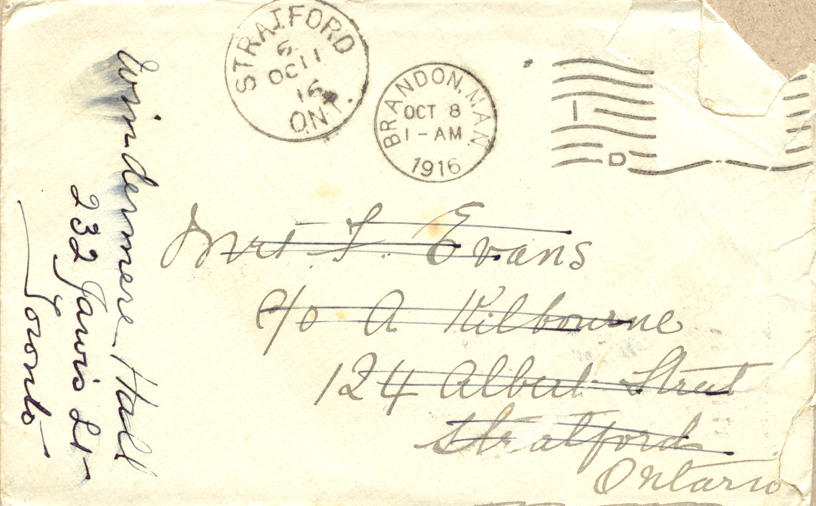 STRATFORD
5
OC 11
16
ONT.
BRANDON, MAN
OCT 8
1-AM
1916
D
Mrs. F. Evans
c/o A Kilbourne
124 Albert Street
Stratford
Ontario
Windermere Hall
232 Jarvis St
Toronto